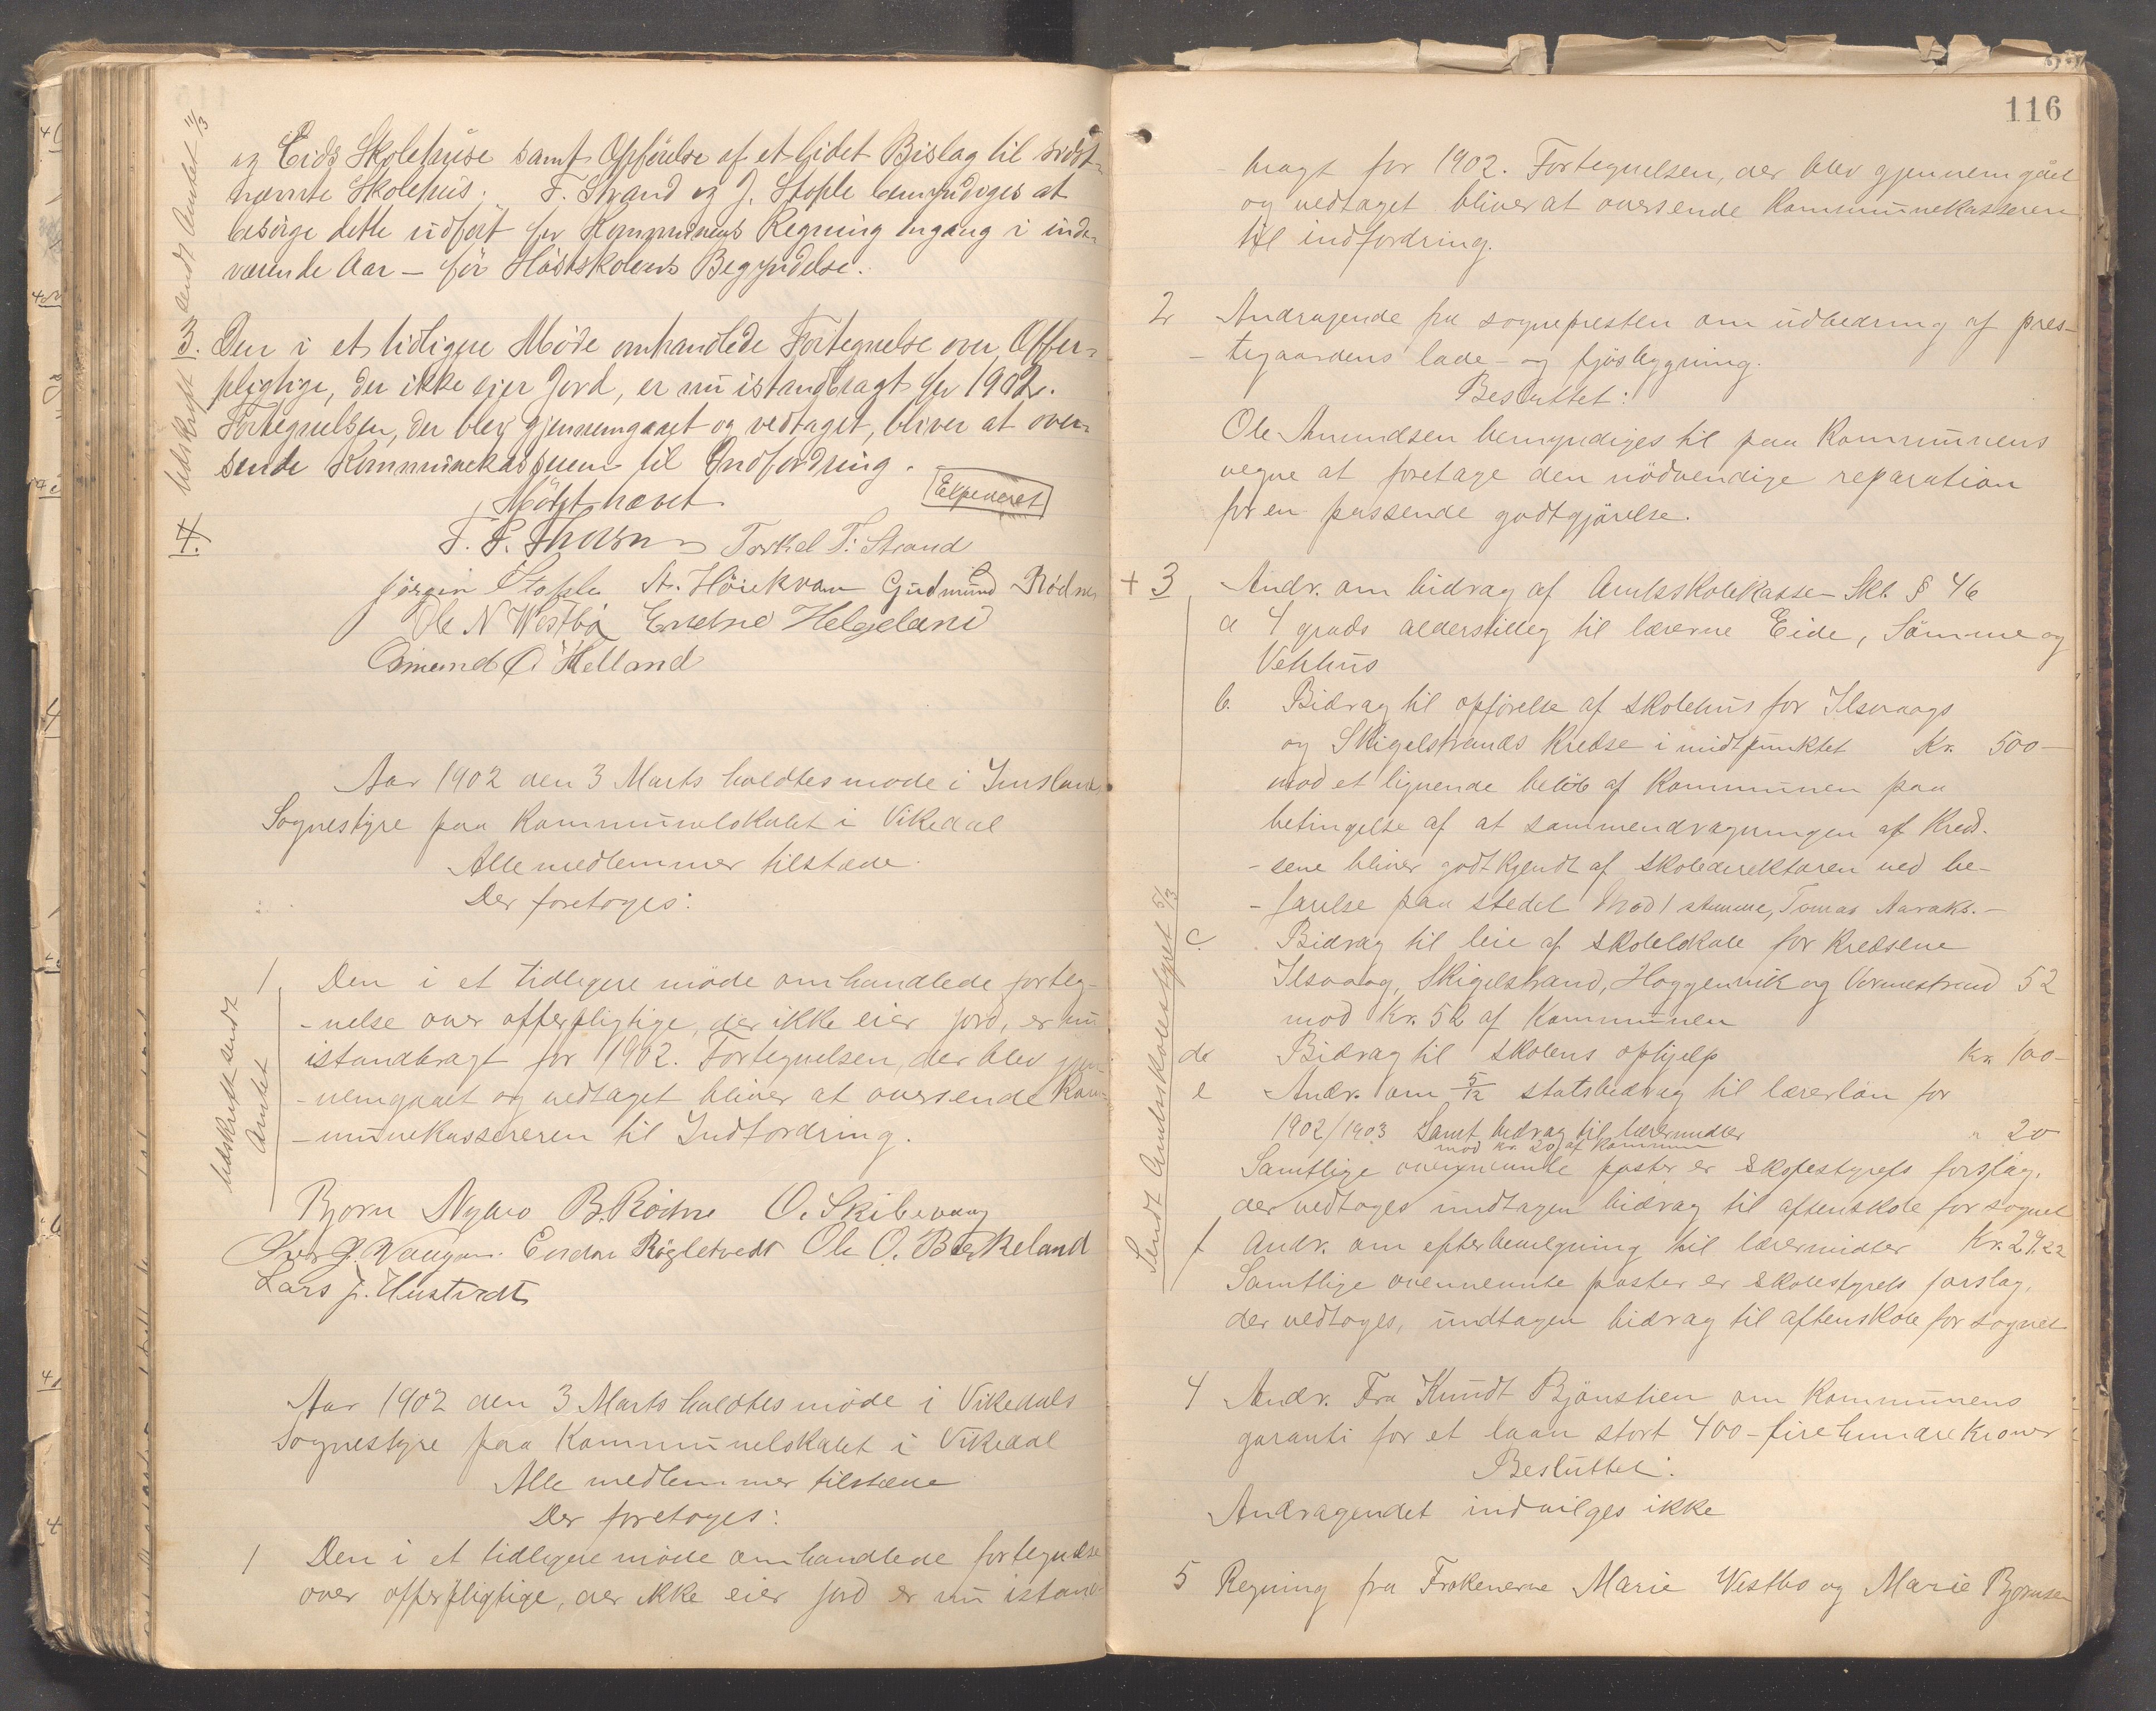 og Eids Skolehuse samt Opförelse af et lidet Bislag til sidst-
nævnte Skolehus. T. Strand og J. Stople bemyndiges at
besörge dette udfört for Kommunens Regning engang i inde-
værende Aar – för Höstskolens Begyndelse.
Udskrift sendt Amtet 11/3
3. Den i et tidligere Möde omhandlede Fortegnelse over Offer-
pligtige, der ikke eier Jord, er nu istandbragt for 1902.
Fortegnelsen, der blev gjennemgaaet og vedtaget, bliver at over-
sende Kommunekassereren til Indfordring.
Mödet hævet
Expederet
4.
Torkel T. Strand
Jörgen Stople St. Höiekvam Gudmund Rödne
Ole N Westbö Endre Helgeland
Omund O. Helland
Aar 1902 den 3 Marts holdtes möde i Imslands
Sognestyre paa Kommunelokalet i Vikedal
Alle medlemmer tilstæde.
Der foretoges:
1 Den i et tidligere möde omhandlede forteg-
-nelse over offerpligtige, der ikke eier jord, er nu
istandbragt for 1902. Fortegnelsen, der blev gjen-
-nemgaaet og vedtaget bliver at oversende Kom-
-munekassereren til Indfordring.
Udskrift sendt
Amtet
Bjorn Nybro B. Rödne O. Skibevaag
Endre Rögletvedt Ole O. Birkeland
Lars J. Hustvedt
Aar 1902 den 3 Marts holdtes möde i Vikedals
Sognestyre paa Kommunelokalet i Vikedal
Alle medlemmer tilstæde
Der foretoges:
1 Den i et tidligere möde omhandlede fortegnelse
over offerpligtige, der ikke eier jord er nu istand-
116
-bragt for 1902. Fortegnelsen, der blev gjennemgået
og vedtaget bliver at oversende Kommunekasseren
til indfordring.
2 Andragende fra sognepresten om udbedring af pres-
-tegaardens lade- og fjösbygning.
Besluttet:
Ole Amundsen bemyndiges til paa Kommunens
vegne at foretage den nödvendige reparation
for en passende godtgjörelse.
+ 3 Andr. om bidrag af Amtsskolekassen Skl. § 46
a 4 grads alderstillæg til lærerne Eide, Sömme og
Vethus
b. Bidrag til opförelse af skolehus for Ilsvaags
og Skigelstrands Kredse i midtpunktet Kr. 500 –
mod et lignende belöb af Kommunen paa
betingelse af at sammendragningen af Kred-
-sene bliver godtkjendt af skoledirektören ved be-
-farelse paa stedet Mod 1 stemme, Tomas Aaraks. –
c. Bidrag til leie af skolelokale for Kredsene
Ilsvaag, Skigelstrand, Hoggenvik og Vormestrand 52
mod Kr. 52 af Kommunen
d Bidrag til skolens ophjelp Kr. 100 –
e Andr. om 5/12 statsbidrag til lærerlön for
1902/1903 Samt bidrag til lærermidler " 20
mod kr. 20 af Kommunen
Samtlige ovennævnte poster er skolestyrets forslag,
der vedtoges undtagen bidrag til aftenskole for sognet
f Andr. om efterbevilgning til lærermidler Kr. 29.22
Samtlige ovennevnte poster er skolestyrets forslag,
der vedtoges, undtagen bidrag til aftenskole for sognet
Sendt Amtsskolestyret 5/3
4 Andr. Fra Knudt Bjönstien om Kommunens
garanti for et laan stort 400 – fire hundre Kroner
Besluttet:
Andragendet indvilges ikke
5 Regning fra Frokenerne Marie Vestbo og Marie Bjornsen